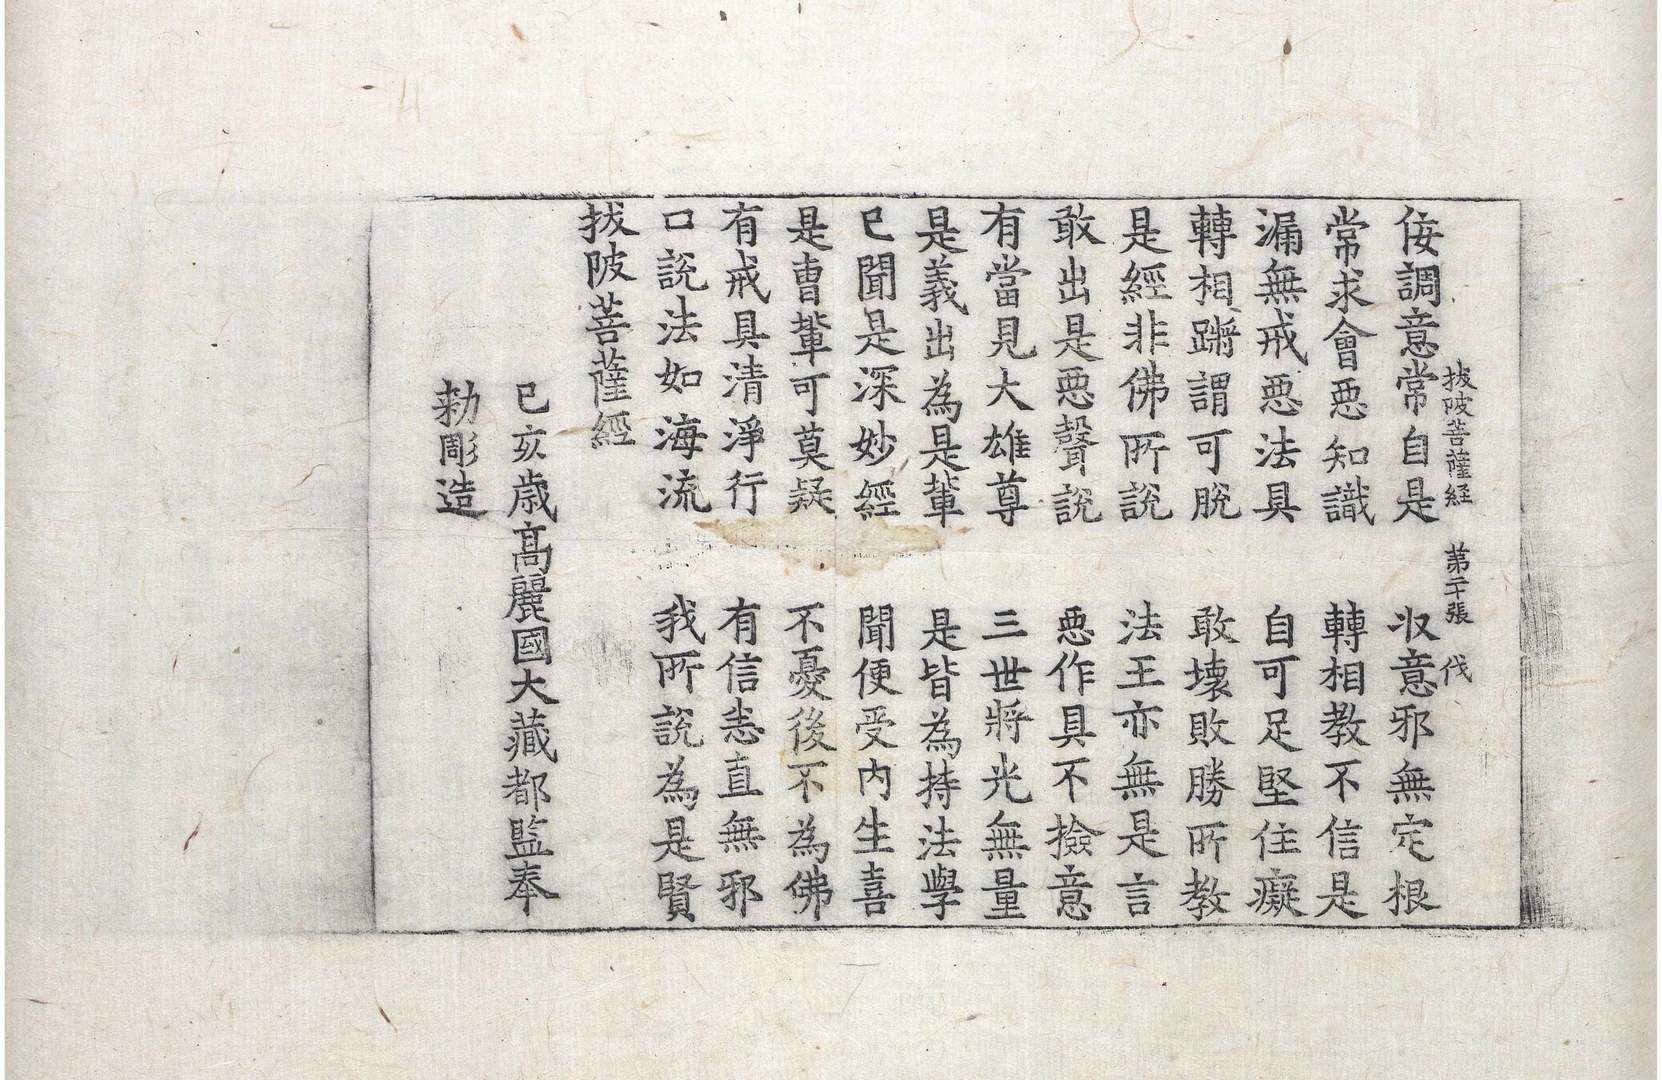 侫調意常自是　収意邪無定根
拔陂菩薩経　第二十張　伐
常求會惡知識　轉相教不信是
漏無戒惡法具　自可足堅住癡
轉相蹡謂可脫　敢壞敗勝所教
是經非佛所說　法王亦無是言
敢出是惡聲說　惡作具不撿意
有當見大雄尊　三世將光無量
是義出為是輩　是皆為持法學
已聞是深妙經　聞便受内生喜
是曹輩可莫疑　不憂後不為佛
有戒具清淨行　有信恚直無邪
口說法如海流　我所說為是賢
拔陂菩薩經
己亥歳高麗國大藏都監奉
勅彫造